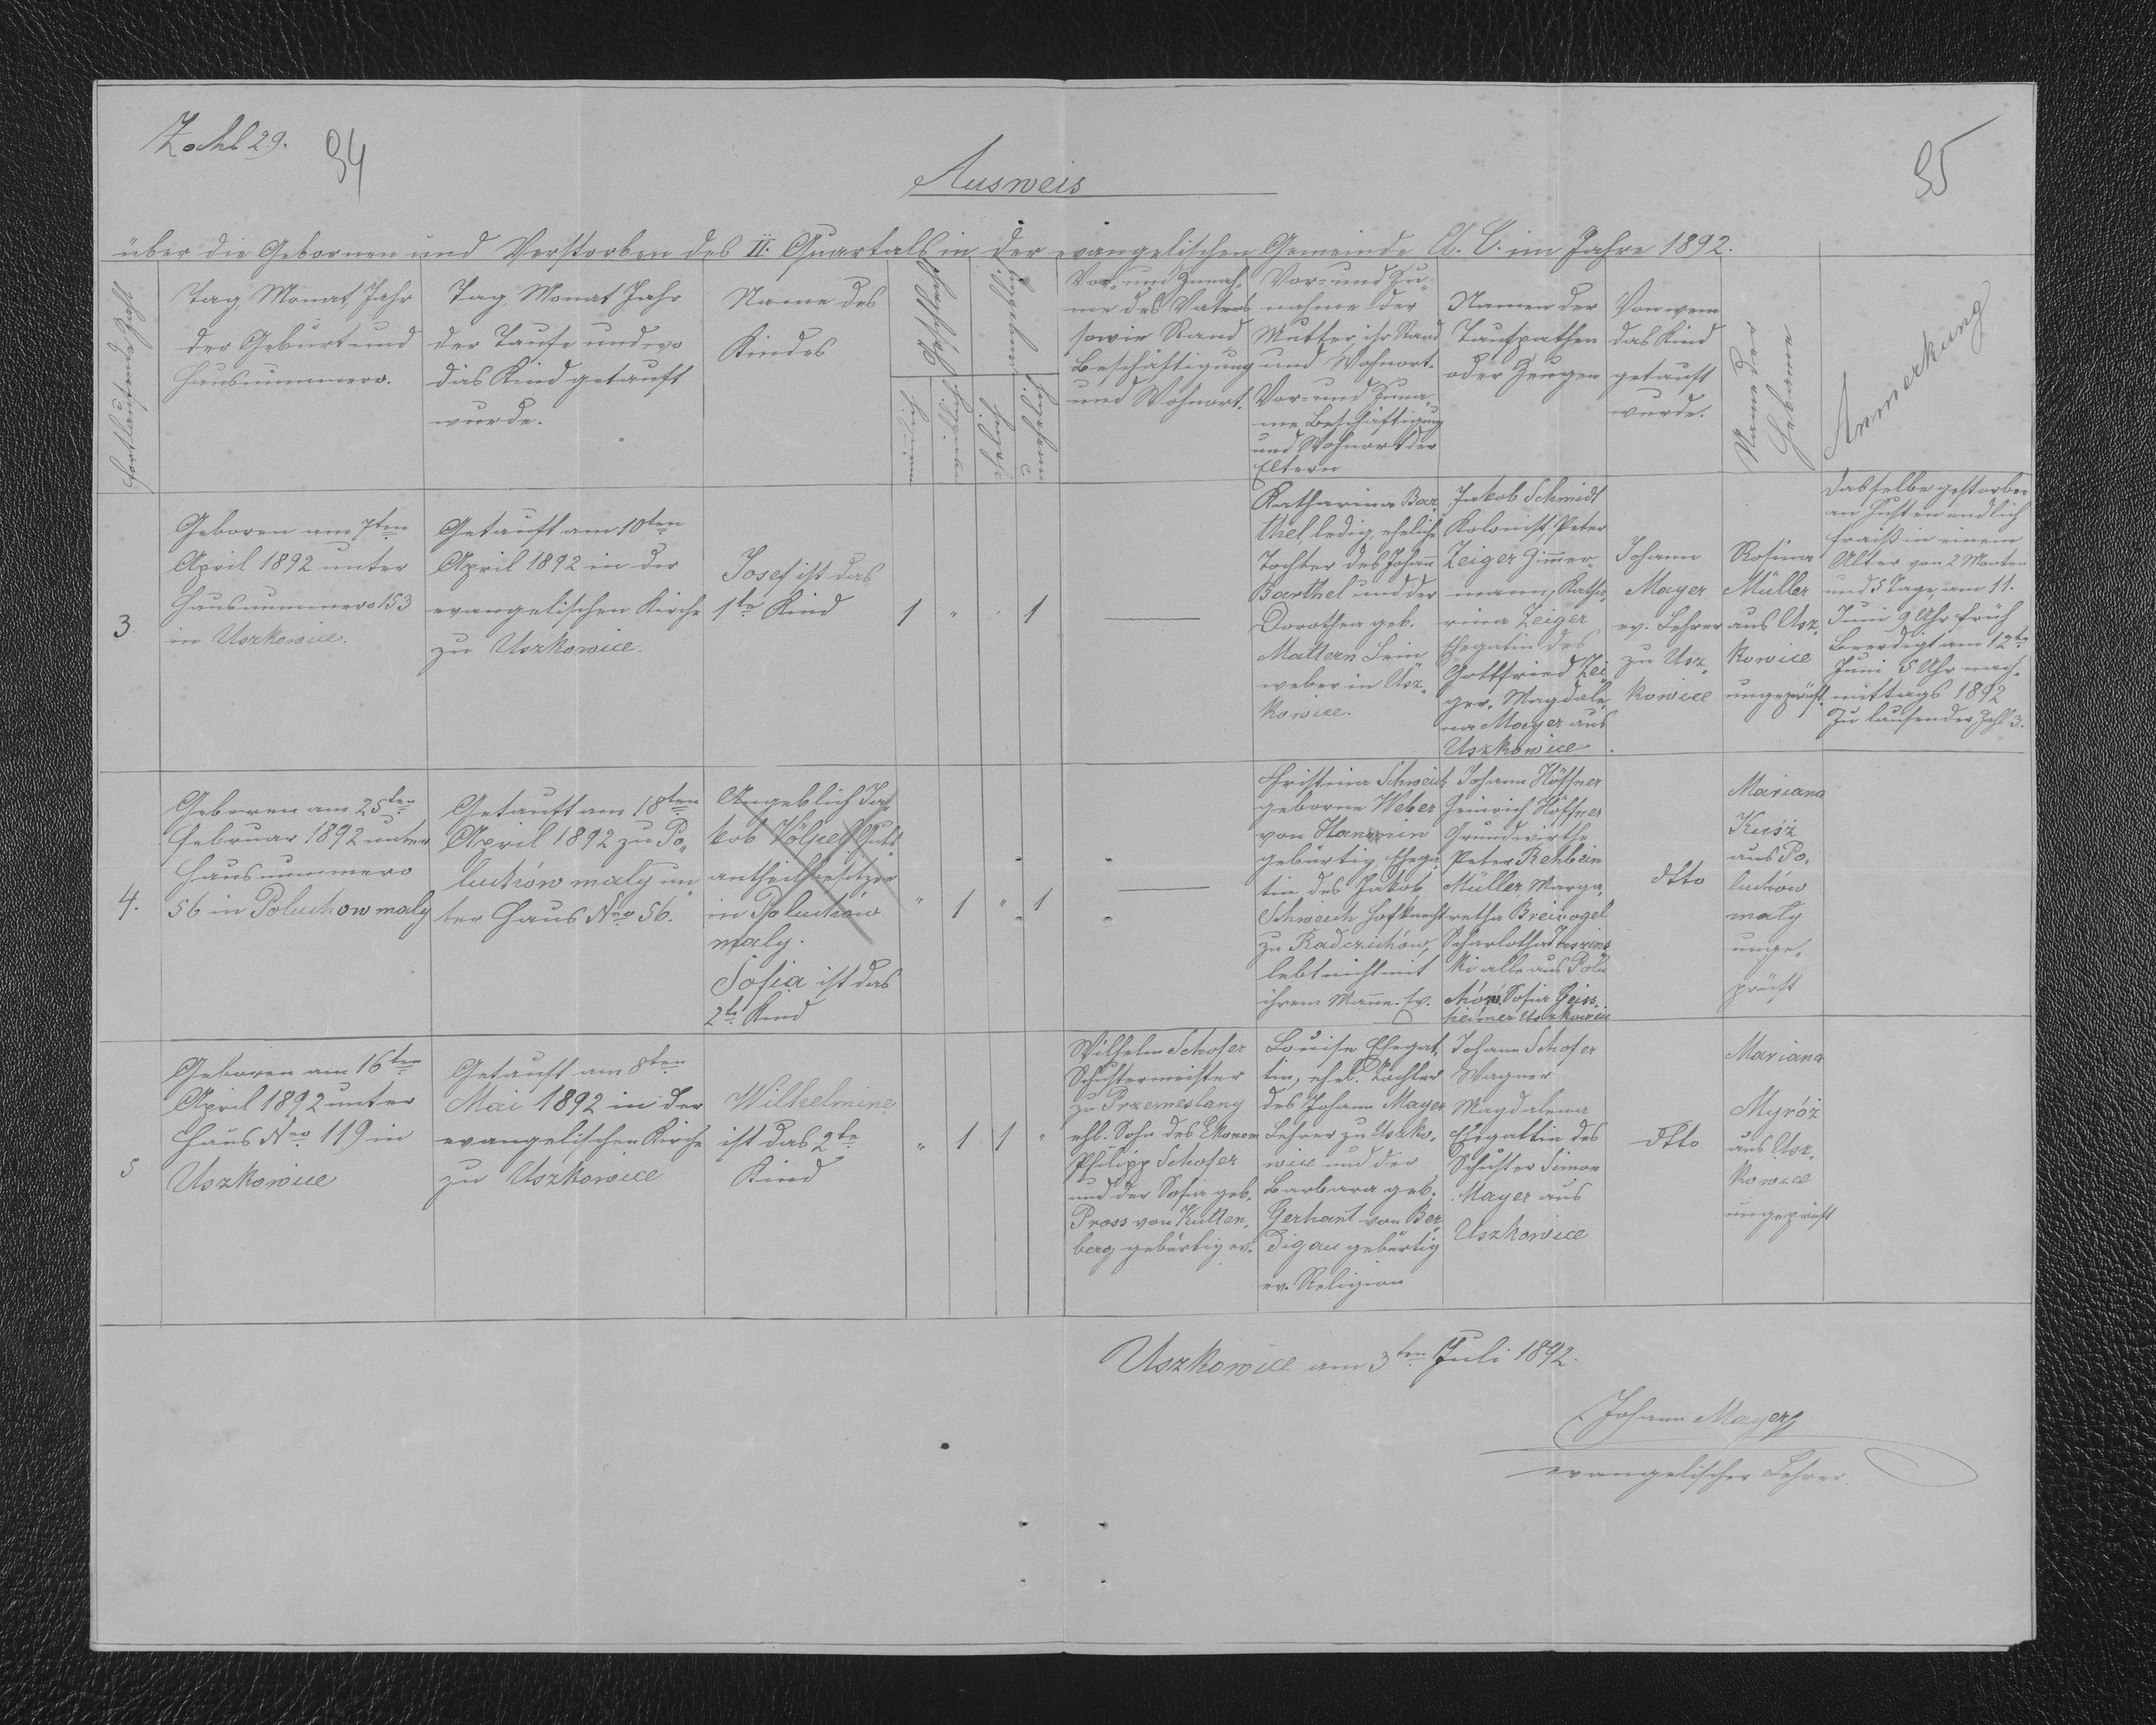 Zahl 29.
94
95
Ausweis
über die Gebornen und Verstorben des II. Quartals in der evangelischen Gemeinde A. C. im Jahre 1892.
Fortlaufende Zahl
Tag, Monat, Jahr
der Geburt und
Hausnummero.
Tag Monat Jahr
der Taufe und wo
das Kind getauft
wurde.
Name des
Kindes
Geschlecht
Vor- und Zunah-
me des Vaters
sowie Stand
Beschäftigung
und Wohnort.
Vor- und Zu-
nahme der
Mutter, ihr Stand
und Wohnort.
Vor- und Zuna-
me Beschäftigung
und Wohnort der
Eltern
Namen der
Taufpathen
oder Zeugen
Von wem
das Kind
getauft
wurde.
Name der
Hebame
Anmerkung
3
Geboren am 7ten
April 1892 unter
Hausnummero 153
in Uszkowice.
Getauft am 10ten
April 1892 in der
evangelischen Kirche
zu Uszkowice.
Josef ist das
1te Kind
1 " " 1
Katharina Bar-
thel ledig, eheliche
Tochter des Johann
Barthel und der
Dorothea geb.
Mattern Lein
weber in Usz-
kowice.
Jakob Schmidt
Kolonist, Peter
Zeiger Zimmer-
mann, Katha-
rina Zeiger
Ehegatin des
Gottfried Zei-
ger, Magdale-
na Mayer aus
Uszkowice
Johann
Mayer
ev. Lehrer
zu Usz-
kowice
Rosina
Müller
aus Usz-
kowice
ungeprüft.
Dasselbe gestorben
an Husten endlich
Fraiß in einem
Alter von 2 Monten
und 5 Tage, am 11.
Juni 9 Uhr früh
Beerdigt am 12te
Juni 5 Uhr nach-
mittags 1892
Zu laufender Zahl 3.
4.
Geboren am 25ten
Februar 1892 unter
Hausnummero
56 in Poluchow maly
Getauft am 18ten
April 1892 zu Po-
luchów maly un-
ter Haus Nro 56.
Angeblich Ja-
kob Völpel Guts
antheilbesitzer
in Poluchów
maly.
Sofia ist das
2te Kind
" 1 " 1
Christina Schweich
geborne Weber
von
gebürtig, Ehega-
tin des Jakob
Schweich Hofknecht
zu Radczichów,
lebt nicht mit
ihrem Mann. Ev.
Johann Höffner
Heinrich Höffner
Grundwirthe
Peter Rehbein
Müller, Marga-
retha Breivogel
Scharlotha
ki alle aus Polu
chów. Sofia Geiss-
heimer Uszkowice
dtto
Mariana
Kusz
aus Po-
luchow
maly
unge-
prüft
5
Geboren am 16ten
April 1892 unter
Haus Nro 119 in
Uszkowice
Getauft am 8ten
Mai 1892 in der
evangelischen Kirche
zu Uszkowice
Wilhelmine
ist das 2te
Kind
" 1 1 "
Wilhelm Schofer
Schustermeister
zu Przemeslany
ehl. Sohn des Ekonom
Philipp Schofer
und der Sofia geb.
Pross von Kutten-
berg gebürtig ev.
Louise Ehegat-
tin, ehel. Tochter
des Johann Mayer
Lehrer zu Uszko-
wice und der
Barbara geb.
Gerhant von Ber-
digau gebürtig
ev. Religion
Johann Schofer
Wagner
Magdalena
Ehegattin des
Schuster Simon
Mayer aus
Uszkowice
dtto
Mariana
Myróz
aus Usz-
kowice
ungeprüft
Uszkowice am 3ten Juli 1892.
Johann Mayer
evangelischer Lehrer.